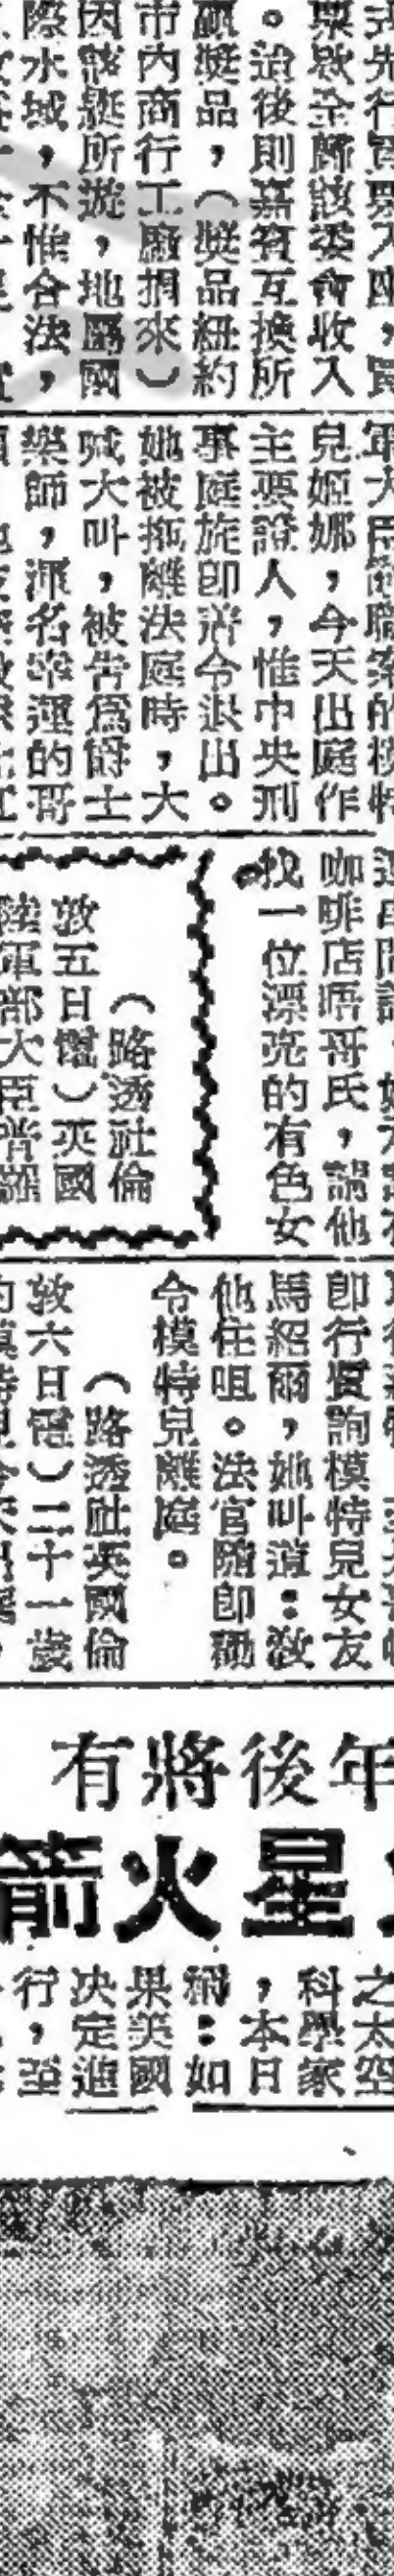 票款全歸該委會收入
。治後則嘉賓互換所
贏獎品，（獎品紐約
市內商行工廠捐來）
因該艇所遊，地屬國
際水域，不惟合法，
兒姬娜，今天出庭作
主要證人，惟中央刑
事庭旋即諭令退出。
她被拖離法庭時，大
喊大叫，被告爲爵士
樂師，渾名幸運的哥
咖啡店晤哥氏，謂他
找一位漂亮的有色女
（路透社倫
敦五日電）英國
陸軍部大臣普羅
即行質詢模特兒女友
馬紹爾，她叫道：敎
他住咀。法官隨即勒
令模特兒離庭。
（路透社英國倫
敦六日電）二十一歲
年後將有
星火箭
之太空
科學家
，本日
稱：如
果美國
決定進
行，至